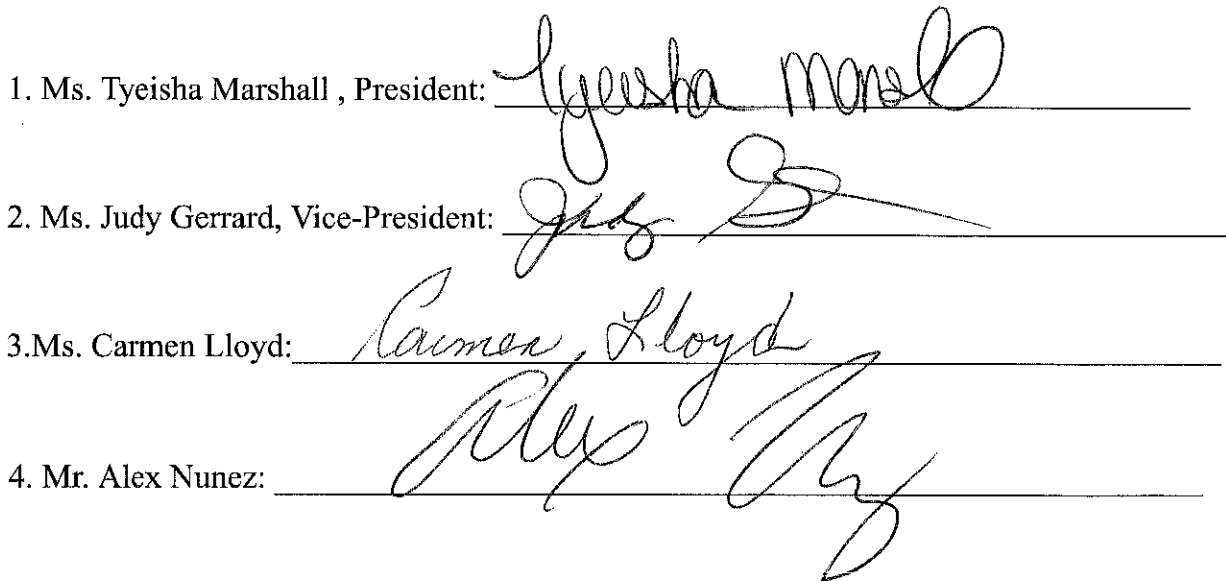 1. Ms. Tyeisha Marshall , President: Tyeisha
2. Ms. Judy Gerrard, Vice-President: Judy
3.Ms. Carmen Lloyd: Carmen Lloyd
4. Mr. Alex Nunez: Alex